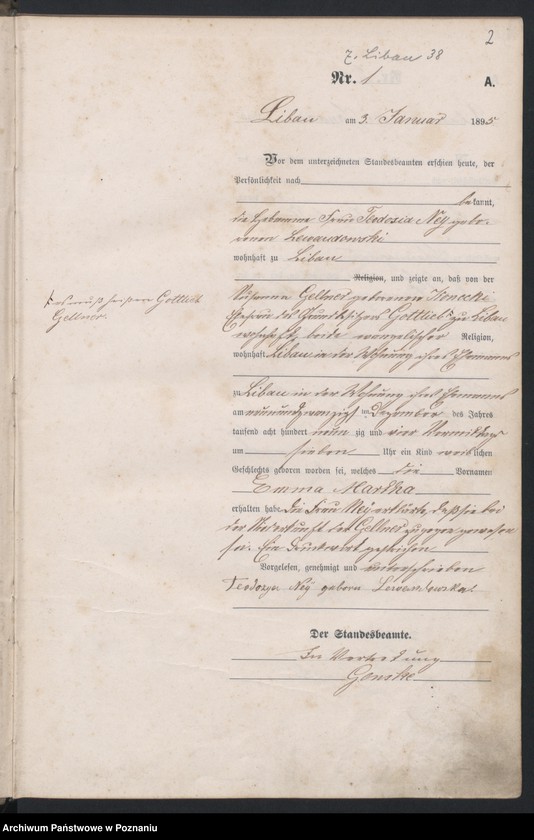 2
7. Libau 38
Nr. 1
A.
Libau am 3. Januar 1895
Vor dem unterzeichneten Standesbeamten erschien heute, der
Persönlichkeit nach
bekannt,
die Hebamme Frau Teodosia Ney gebo-
renen Lewandowski
wohnhaft zu Libau
Religion, und zeigte an, daß von der
Gellner geborenen
Ehefrau des Gottlieb zu Libau
wohnhaft, beide evangelischer Religion,
wohnhaft Libau in der Wohnung ihres Ehemannes
es muß heißen Gottlieb
Gellner.
zu Libau in der Wohnung ihres Ehemannes
am neunundzwanzigsten Dezember des Jahres
tausend acht hundert neunzig und vier Vormittags
um sieben Uhr ein Kind weiblichen
Geschlechts geboren worden sei, welches die Vornamen
Emma Martha
erhalten habe. Die Frau Ney erklärte, daß sie bei
der Niederkunft der Gellner zugegen gewesen
sei. Ein Druckwort gestrichen
Vorgelesen, genehmigt und unterschrieben
Teodozya Ney geborn Lewandowska
Der Standesbeamte.
In Vertretung
Genske
Archiwum Państwowe w Poznaniu